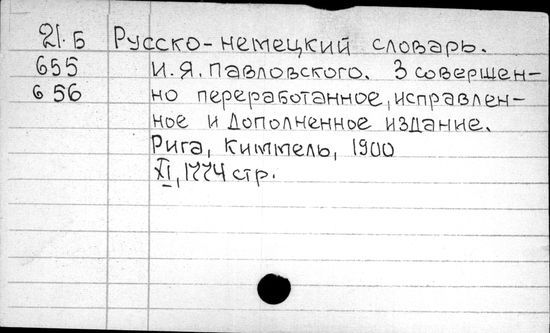 21.Б Русско-немецкий словарь.
655 И.Я.Павловского. 3 совершен-
656 но переработанное, исправлен-
ное и дополненное издание.
Рига, Киммель, 1900
XI, 1774 стр.